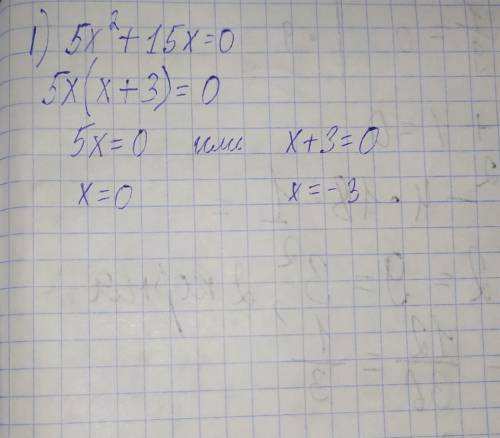 1) 5x² + 15x = 0
5x(x + 3) = 0
5x = 0 или x + 3 = 0
x = 0 x = -3